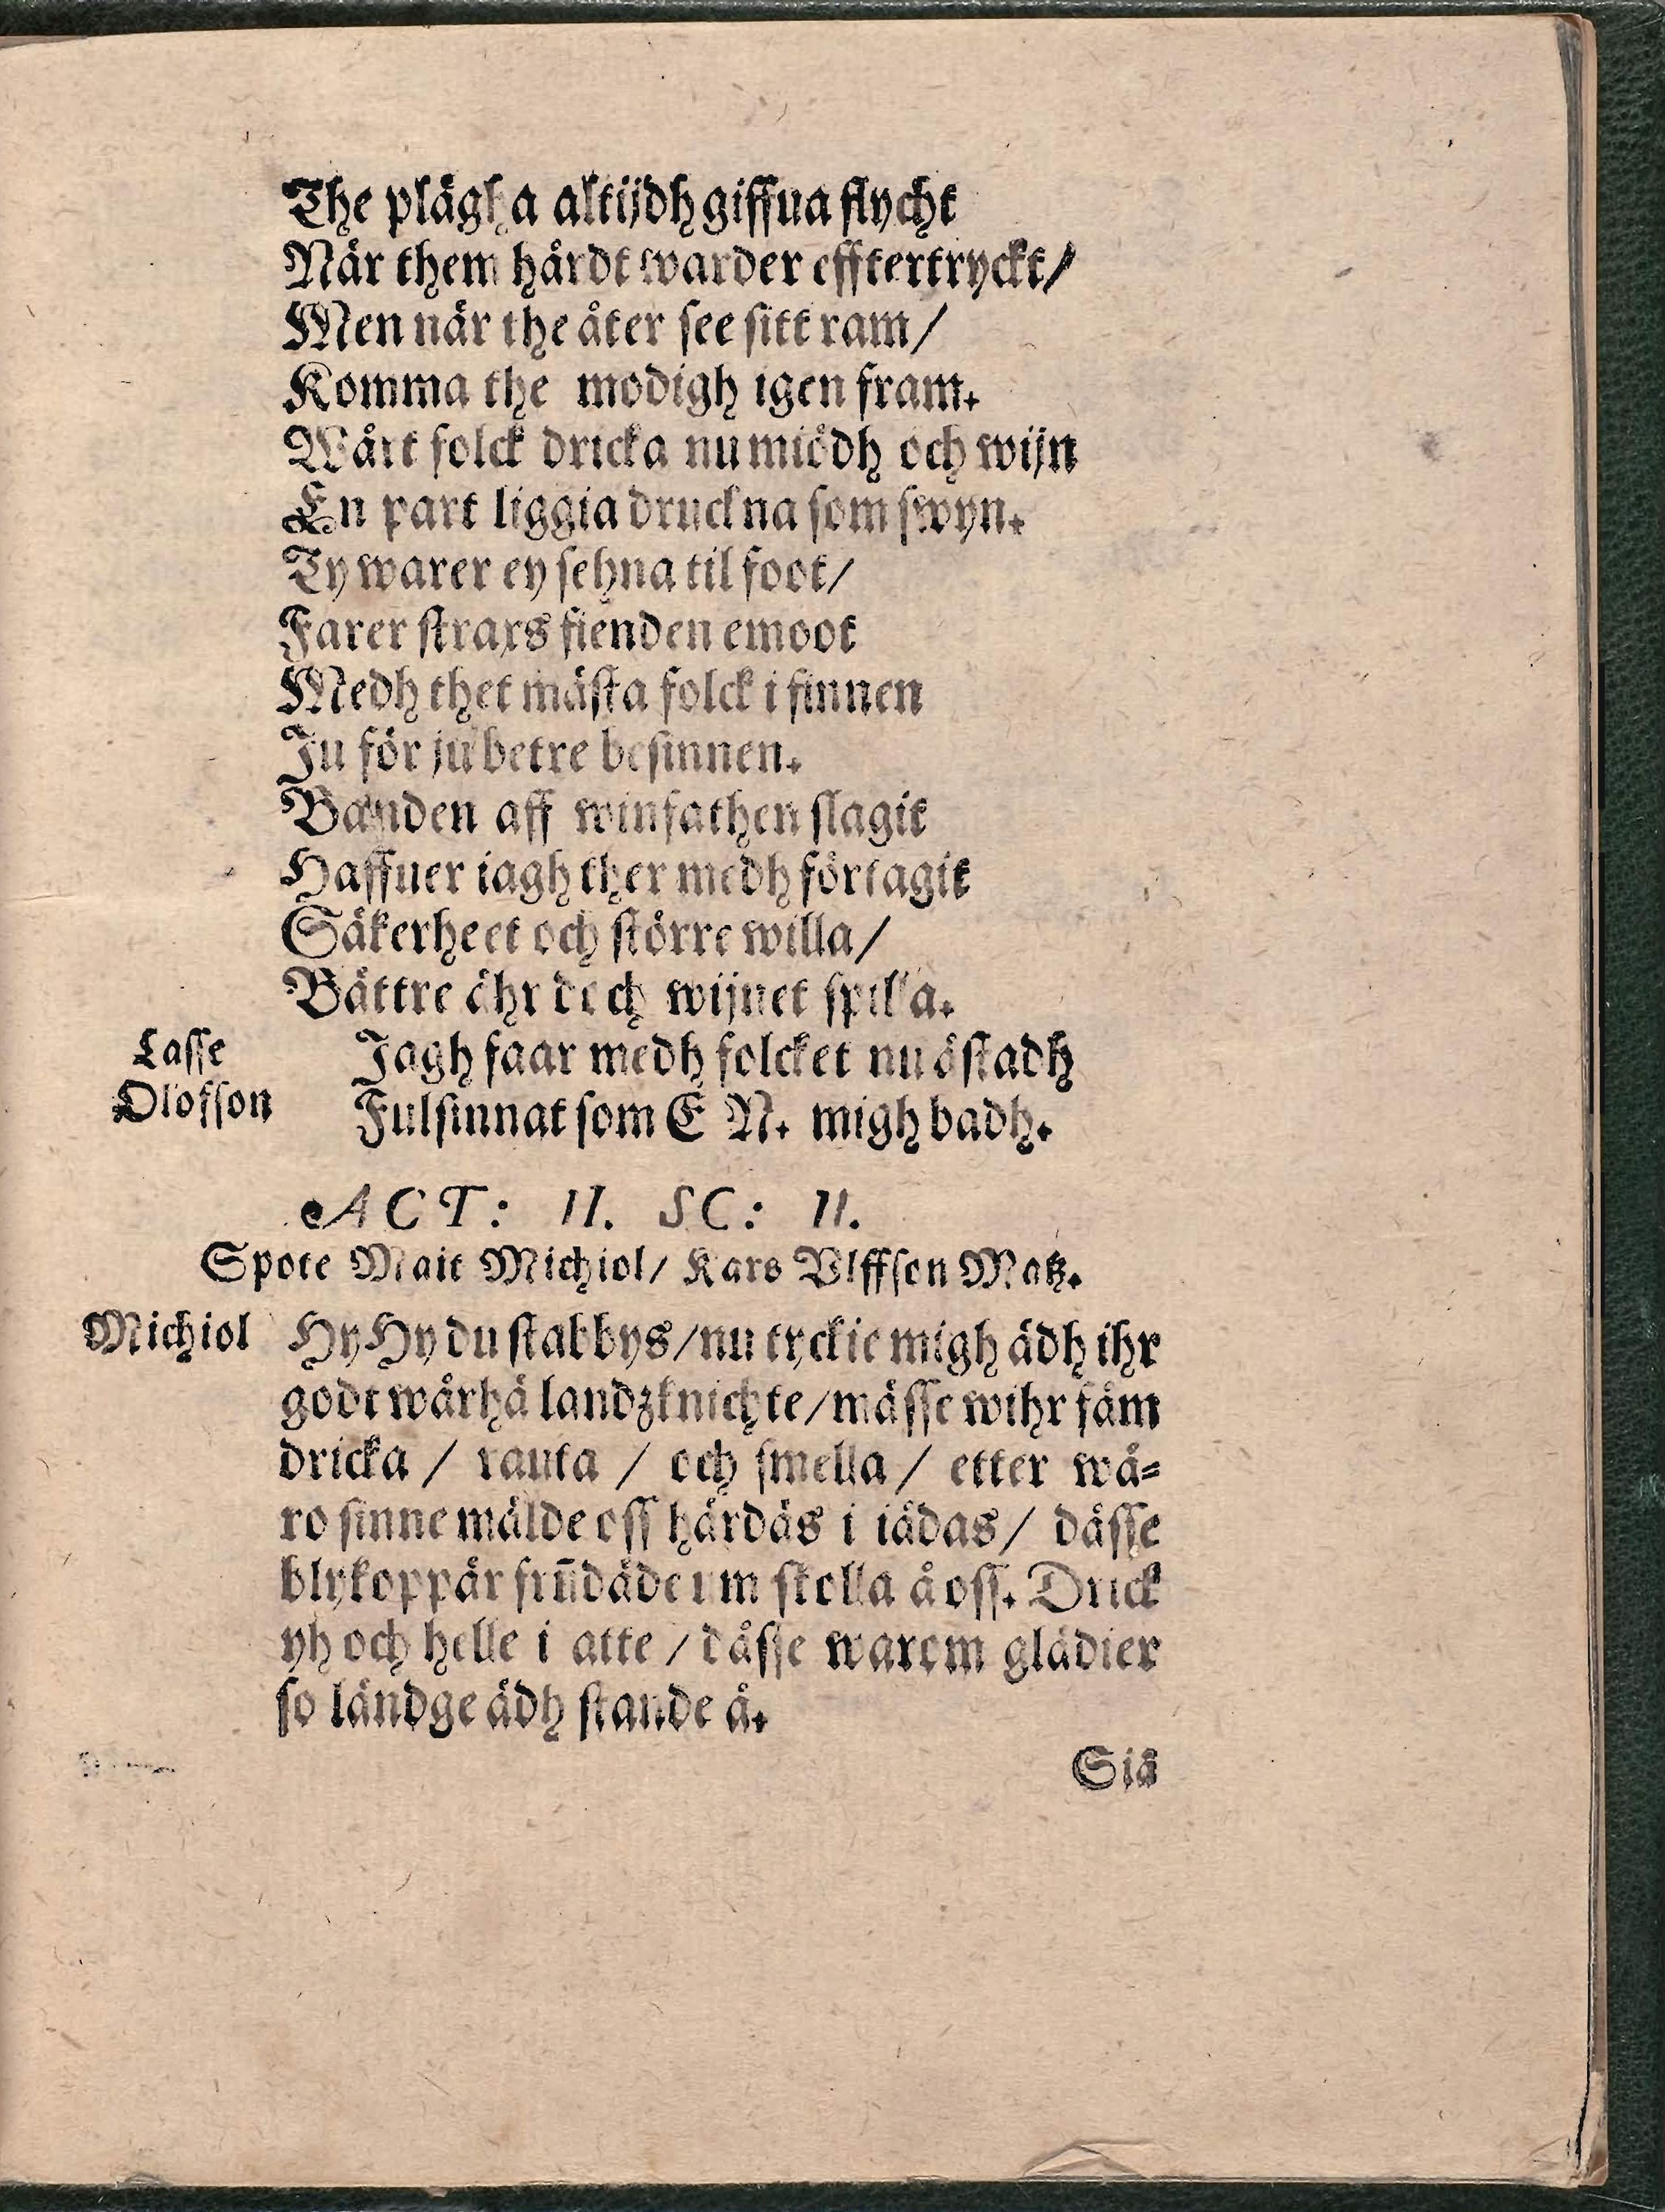 The plägha altijdh giffua flycht
När them hårdt warder efftertryckt/
Men när the åter see sitt ram/
Komma the modigh igen fram.
Wårt folck dricka nu miödh och wijn
En part liggia druckna som swyn.
Ty warer ey sehna til foot/
Farer straxs fienden emoot
Medh thet mästa folck i finnen
Ju för ju betre besinnen.
Banden aff winfathen slagit
Haffuer iagh ther medh förtagit
Säkerheet och större willa/
Bättre ähr doch wijnet spilla.
Lasse Jagh faar medh folcket nu åstadh
Olofson Fulsinnat som E N. migh badh.
ACT: II. SC: II.
Spote Mait Michiol/ Kars Vlffson Matz.
Michiol Hy Hy du stabbys/nu tyckie migh ädh ihr
godt wårhä landzknichte/mässe wihr fäm
dricka / rauta / och smella / etter wå=
ro sinne mälde oss hårdäs i iädas/ dässe
blykoppär frūdäde um stolla å oss. Drick
yh och helle i atte / dåsse warom glädier
so ländge ädh stande å.
Siä